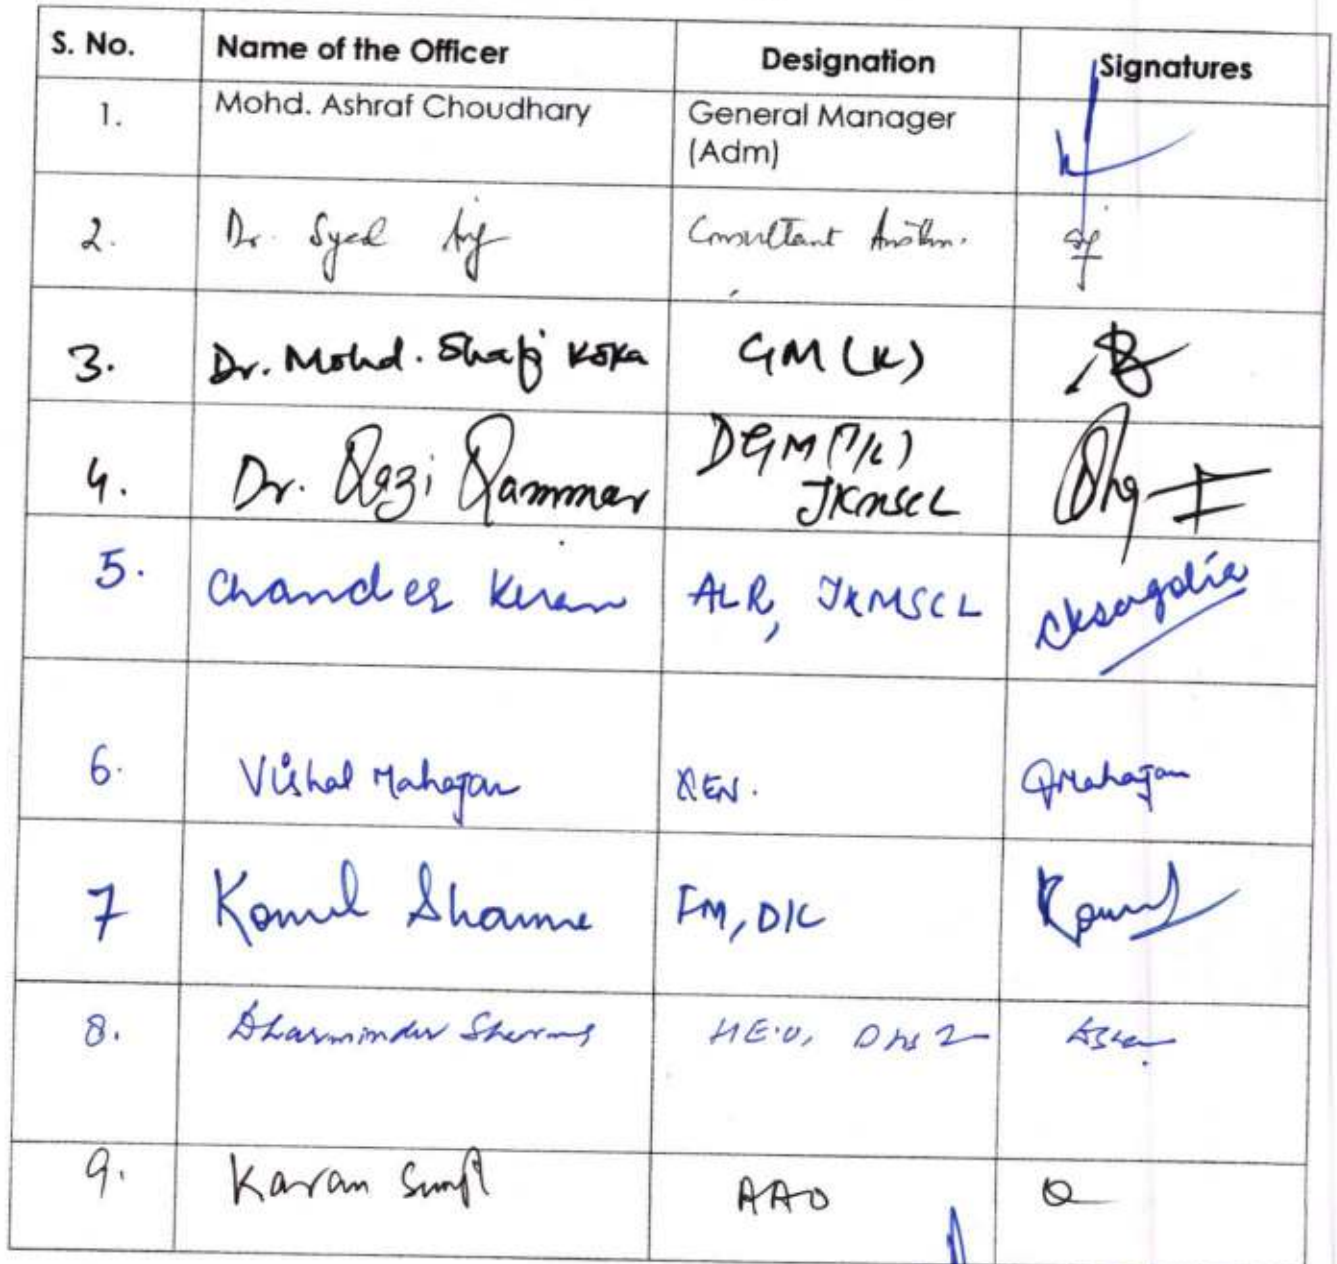 S. No. Name of the Officer Designation Signatures
1. Mohd. Ashraf Choudhary General Manager
(Adm)
2. Dr. Syed Consultant
3. Dr. Mohd. Shafi Koka GM (K)
4. Dr. Qazi Qammar DGM (T/K)
JKMSCL
5. Chander Kiran ALR, JKMSCL cksangolia
6. Vishal Mahajan XEN. Mahajan
7 Komal Sharma FM, DIC Komal
8. Dharminder Sharma
9. Karan AAO